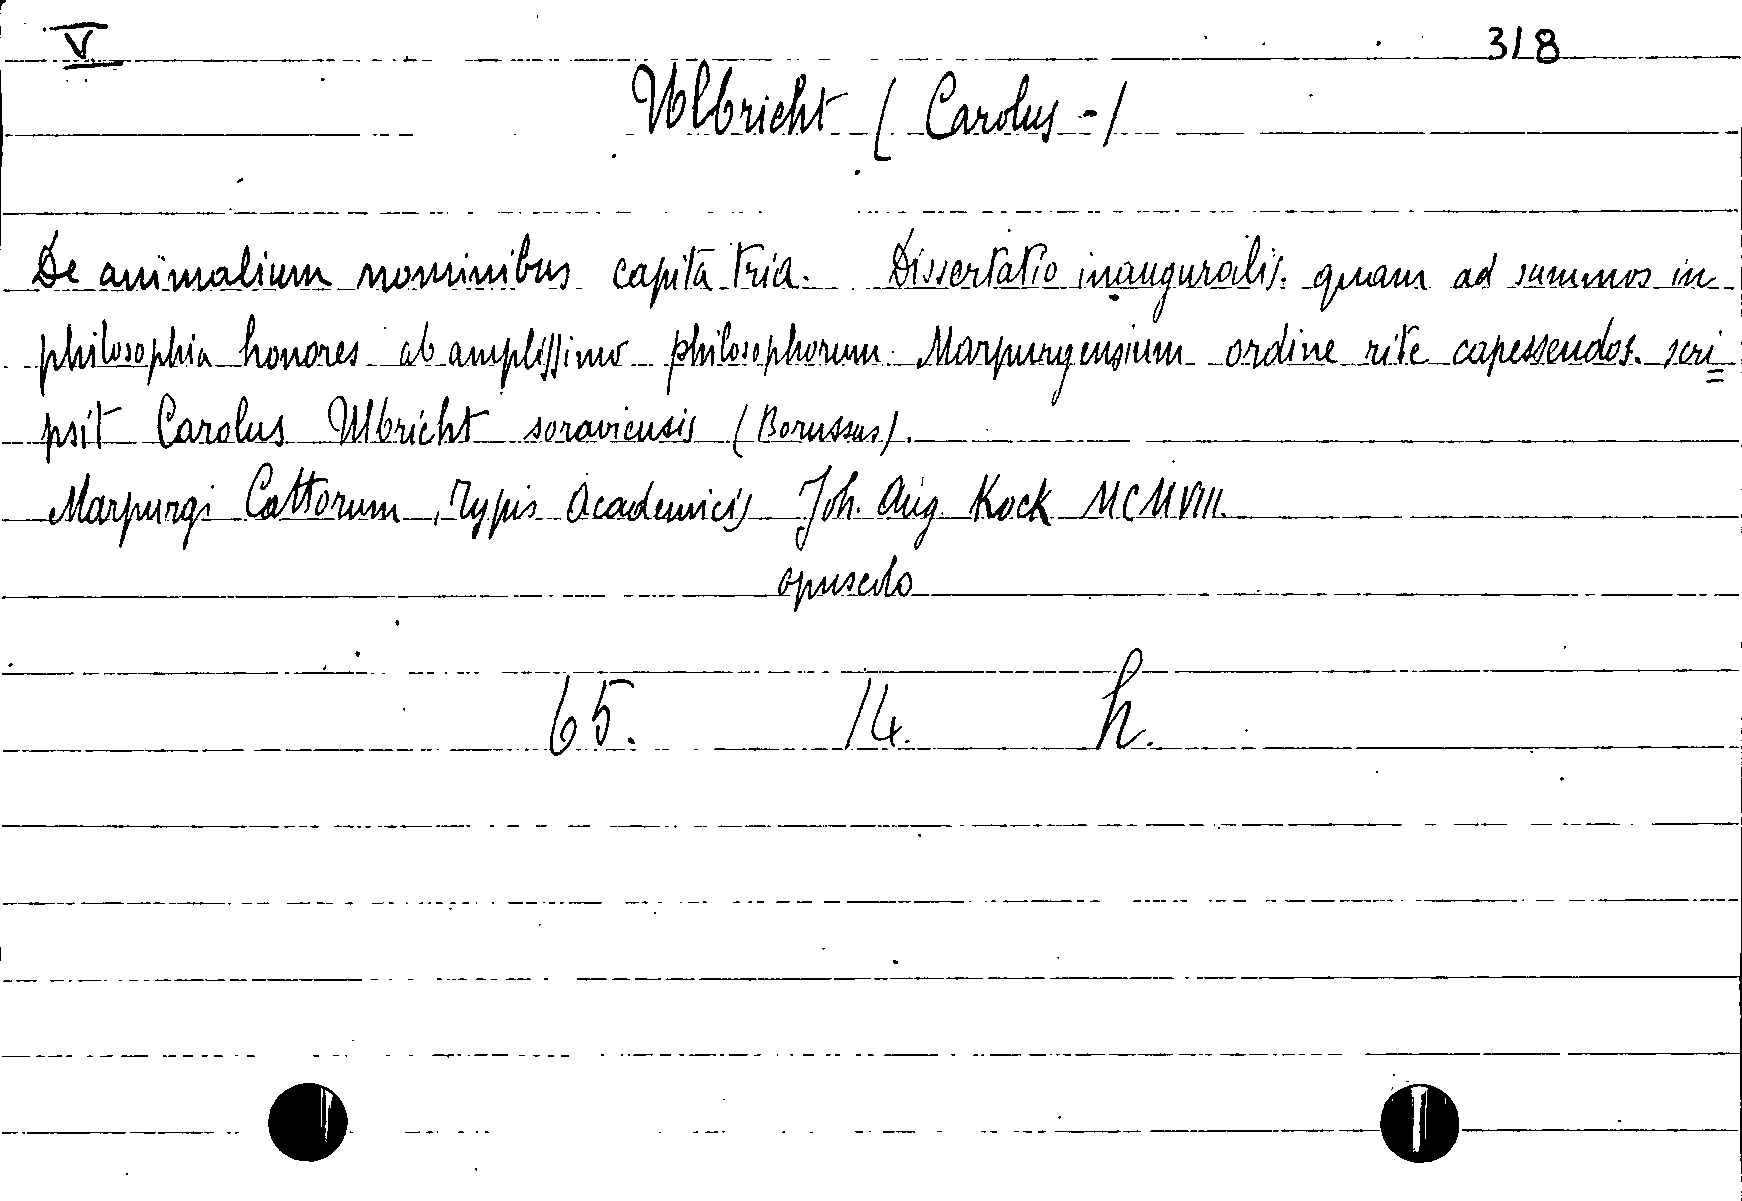 V 318
Ulbricht (Carolus -)
De animalium nominibus capita tria. Dissertatio inauguralis. quam ad summos in
philosophia honores ab amplissimo philosophorum Marpurgensium ordine rite capessendos. scri
psit Carolus Ulbricht soraviensis (Borussus).
Marpurgi Cattorum, Typis Academicis Joh. Aug. Kock MCMVIII.
opuscolo
65. 14. h.